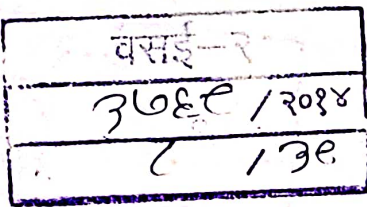 वसई-२
३७६९ / २०१४
८ / ३९